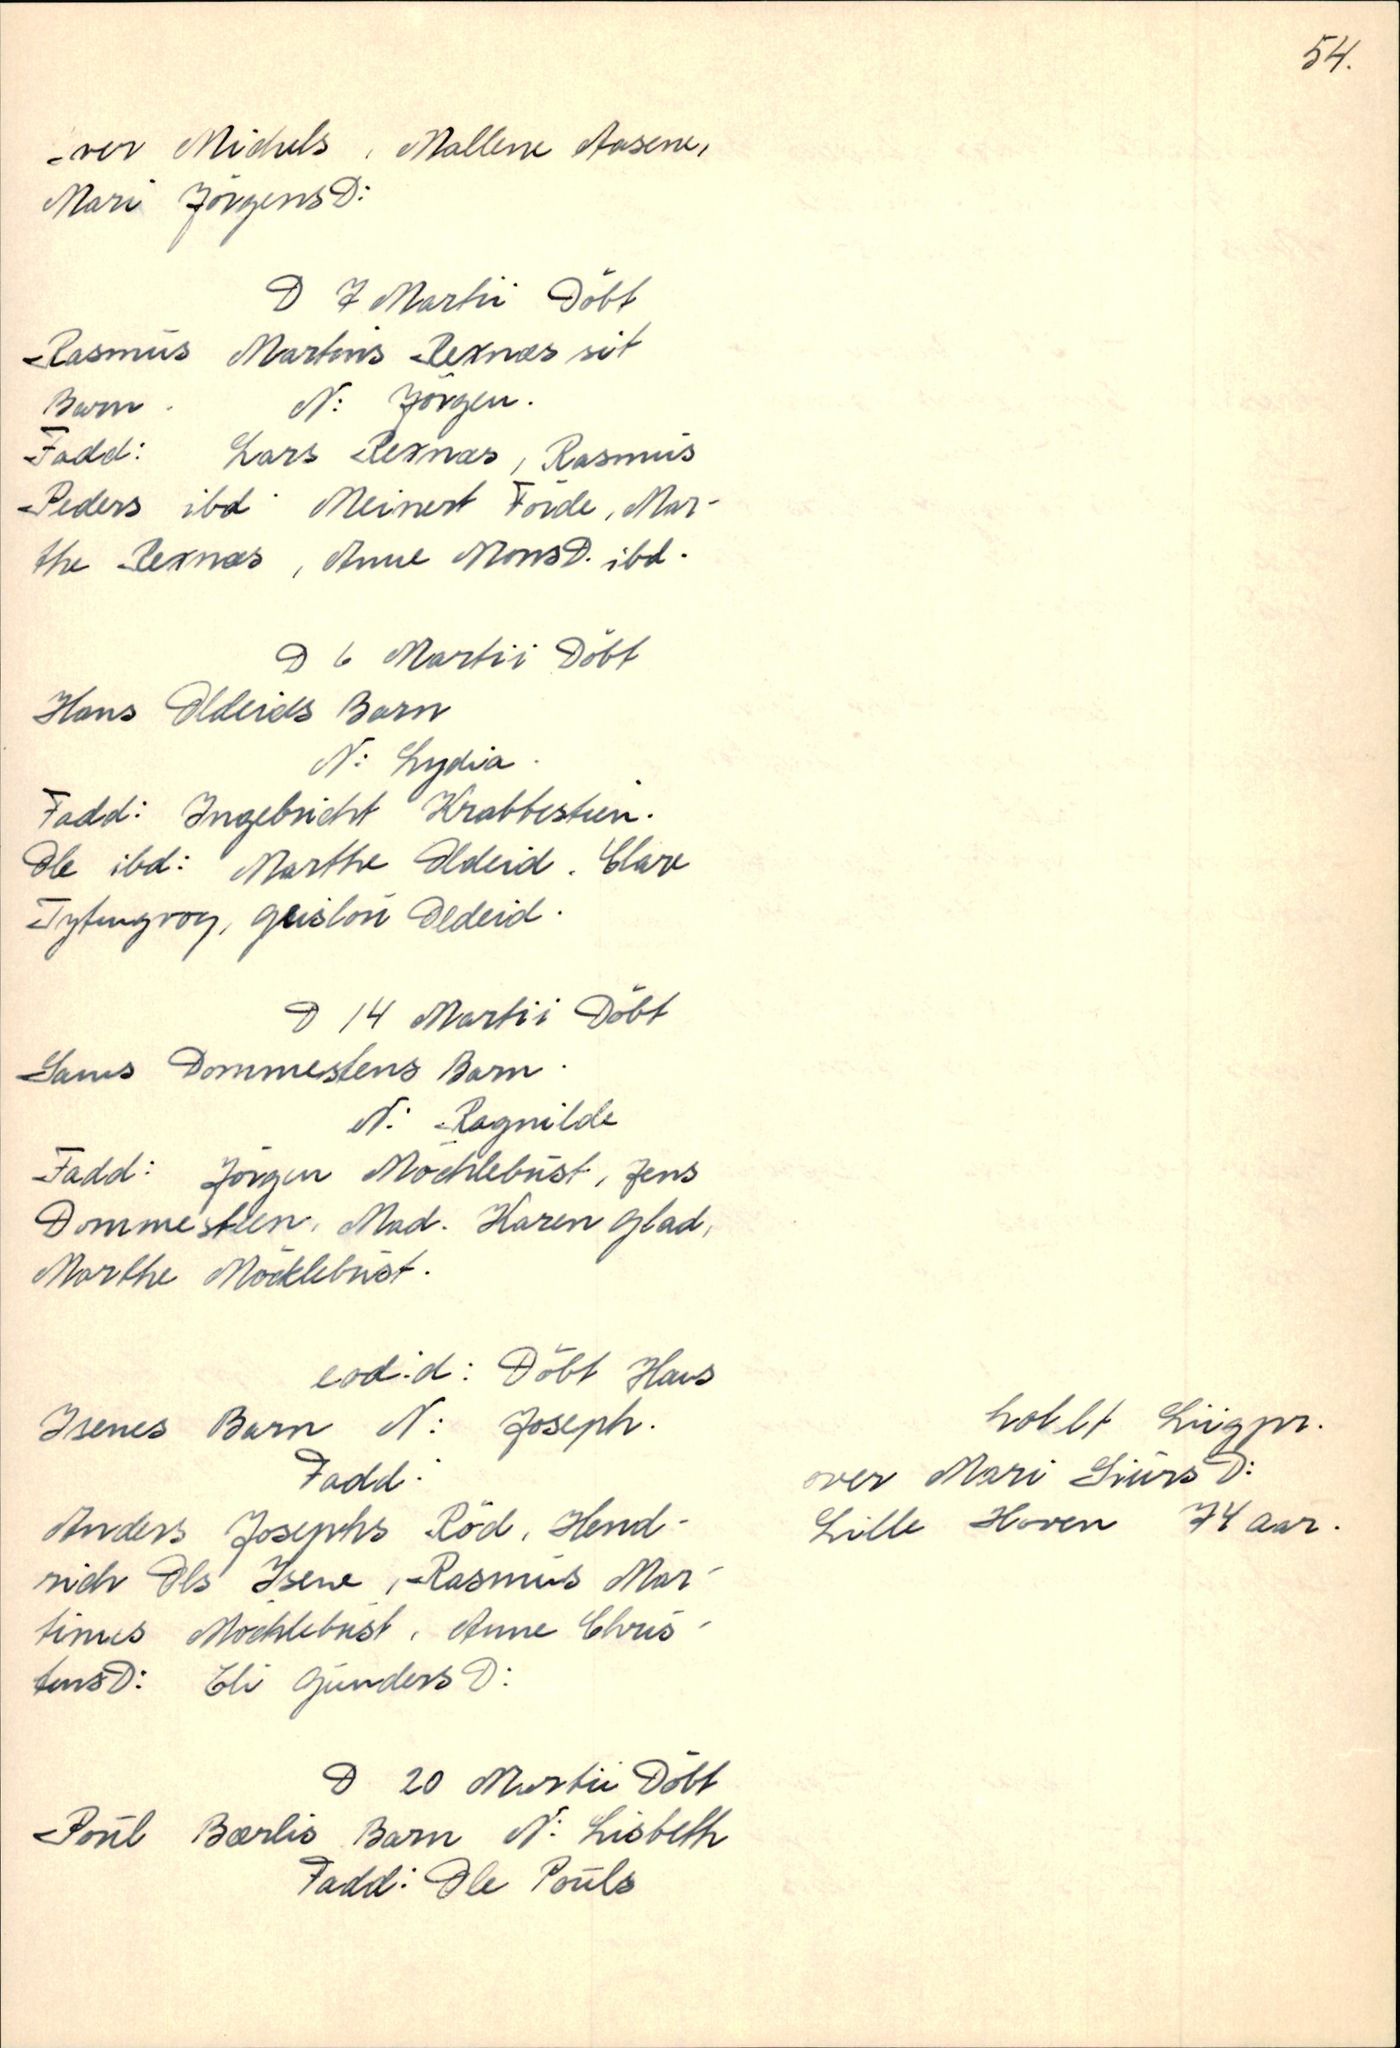 54.
-ver Michels, Mallene Aasene,
Mari JörgensD:
D 7 Martii Döbt
Rasmus Martinis Rexnæs sit
Barn. N: Jörgen.
Fadd: Lars Rexnæs, Rasmus
Peders ibd. Meinert Förde, Mar-
the Rexnæs, Anne MonsD. ibd.
D 6 Martii Döbt
Hans Oldeids Barn
N: Lydia.
Fadd: Ingebricht Krabbestien.
Ole ibd: Marthe Oldeid. Clare
Tytingvog, Geislou Oldeid.
D 14 Martii Döbt
Dommestens Barn.
N: Ragnilde
Fadd: Jörgen Möchlebust, Jens
Dommesteen, Mad. Karen Glad,
Marthe Möcklebust.
eod.d: Döbt Hans
Isenes Barn N: Joseph.
Fadd:
Anders Josephs Röd, Hend-
rich Ols Isene, Rasmus Mar-
tinus Möchlebust, Anne Chris-
tensD: Eli GundersD:
holdt Liigpr.
over Mari SiursD:
Lille Hoven 74 aar.
D 20 Martii Döbt
Poul Bærlis Barn N: Lisbeth
Fadd: Ole Pouls